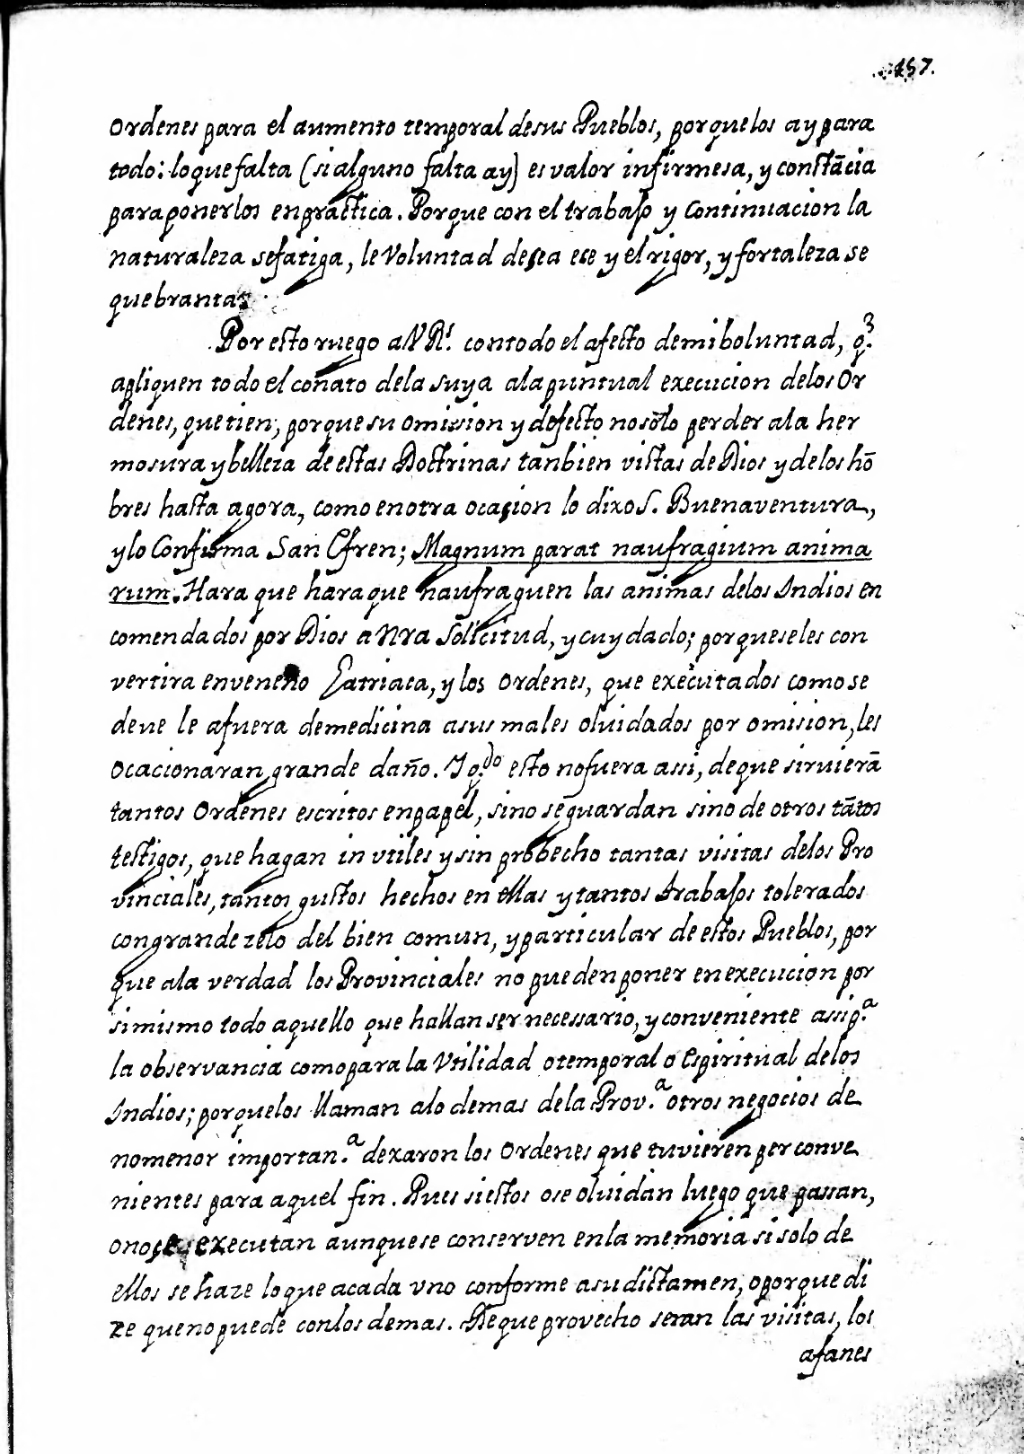 457.
Ordenes para el aumento temporal desus Pueblos, porquelos ay para
todo: loquefalta (si alguno falta ay) es valor infirmesa, y constãcia
paraponerlos enpractica. Porque con el trabajo y Continuacion la
naturaleza sefatiga, le Voluntad desea ese y el rigor, y fortaleza se
quebrantas
Por esto ruego a V Rs. contodo el afecto demiboluntad, q.
apliquen todo el conato dela suya ala puntual execucion delos Or
denes, que tien, porque su omision y defecto nosõlo perder ala her
mosura y belleza de estas Doctrinas tanbien vistas de Dios y delos hõ
bres hasta agora, como enotra ocasion lo dixo S. Buenaventura,
ylo Confirma San Efren; Magnum parat naufragium anima
rum. Hara que hara que naufraguen las animas delos Indios en
comendados por Dios a Nra Solicitud, y cuydado; porqueseles con
vertira enveneno Tatriaca, y los ordenes, que executados como se
deve le afuera demedicina asus males olvidados por omision, les
Ocacionaran grande daño. Y q.do esto nofuera assi, deque sirvierã
tantos Ordenes escritos enpapel, sino sẽguardan sino de otros tãtos
testigos, que hagan in vtiles y sin probecho tantas visitas delos Pro
vinciales, tantos gustos hechos en ellas y tantos trabajos tolerados
congrande zelo del bien comun, y particular de estos Pueblos, por
que ala verdad los Provinciales no pueden poner en execucion por
simismo todo aquello que hallan ser necessario, y conveniente assip.a
la observancia comopara la Vtilidad otemporal o Espiritual delos
Indios; porquelos llaman alo demas dela Prov.a otros negocios de
nomenor importan.a dexaron los Ordenes que tuvieren per conve
nientes para aquel fin. Pues siestos ose olvidan luego que passan,
onose executan aunquese conserven enla memoria si solo de
ellos se haze loque acada vno conforme asu dictamen, oporque di
ze quenopuede conlos demas. Deque provecho seran las visitas, los
afanes